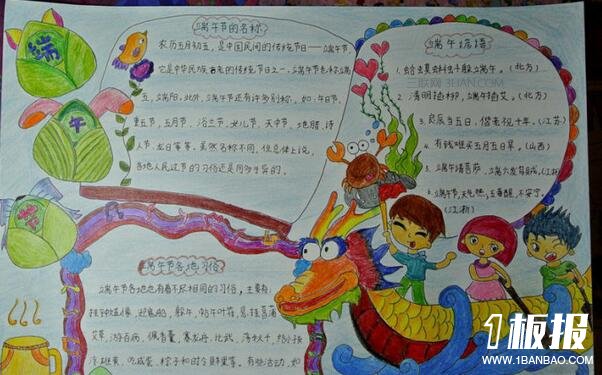 端
午
节
端午节的名称
农历五月初五,是中国民间的传统节日——端午节,
它是中华民族古老的传统节日之一。端午节也称端
五,端阳。此外,端午节还有许多别称,如:午日节、
重五节,五月节、浴兰节、女儿节,天中节、地腊、诗
人节、龙日等等。虽然名称不同,但总体上说,
各地人民过节的习俗还是同多于异的。
端午谚语
1.蛤蟆蝌蚪躲端午。(北方)
2.清明插柳,端午插艾。(北方)
3.良辰当五日,偕老祝千年。(江苏)
4.有钱难买五月五日旱。(山西)
5.端午请菩萨,端六发乌贼。(江浙)
6.端午节,天气热;五毒醒,不安宁。
(江浙)
三联网 3LIAN.COM
端午节各地习俗
端午节各地也有着不尽相同的习俗,主要有:
挂钟馗像,迎鬼船、躲午,帖午叶符,悬挂菖蒲、
艾草,游百病,佩香囊,赛龙舟,比武,荡秋千,给小孩
涂雄黄,吃咸蛋,粽子和时令鲜果等。有些活动,如
1板报
WWW.1BANBAO.COM